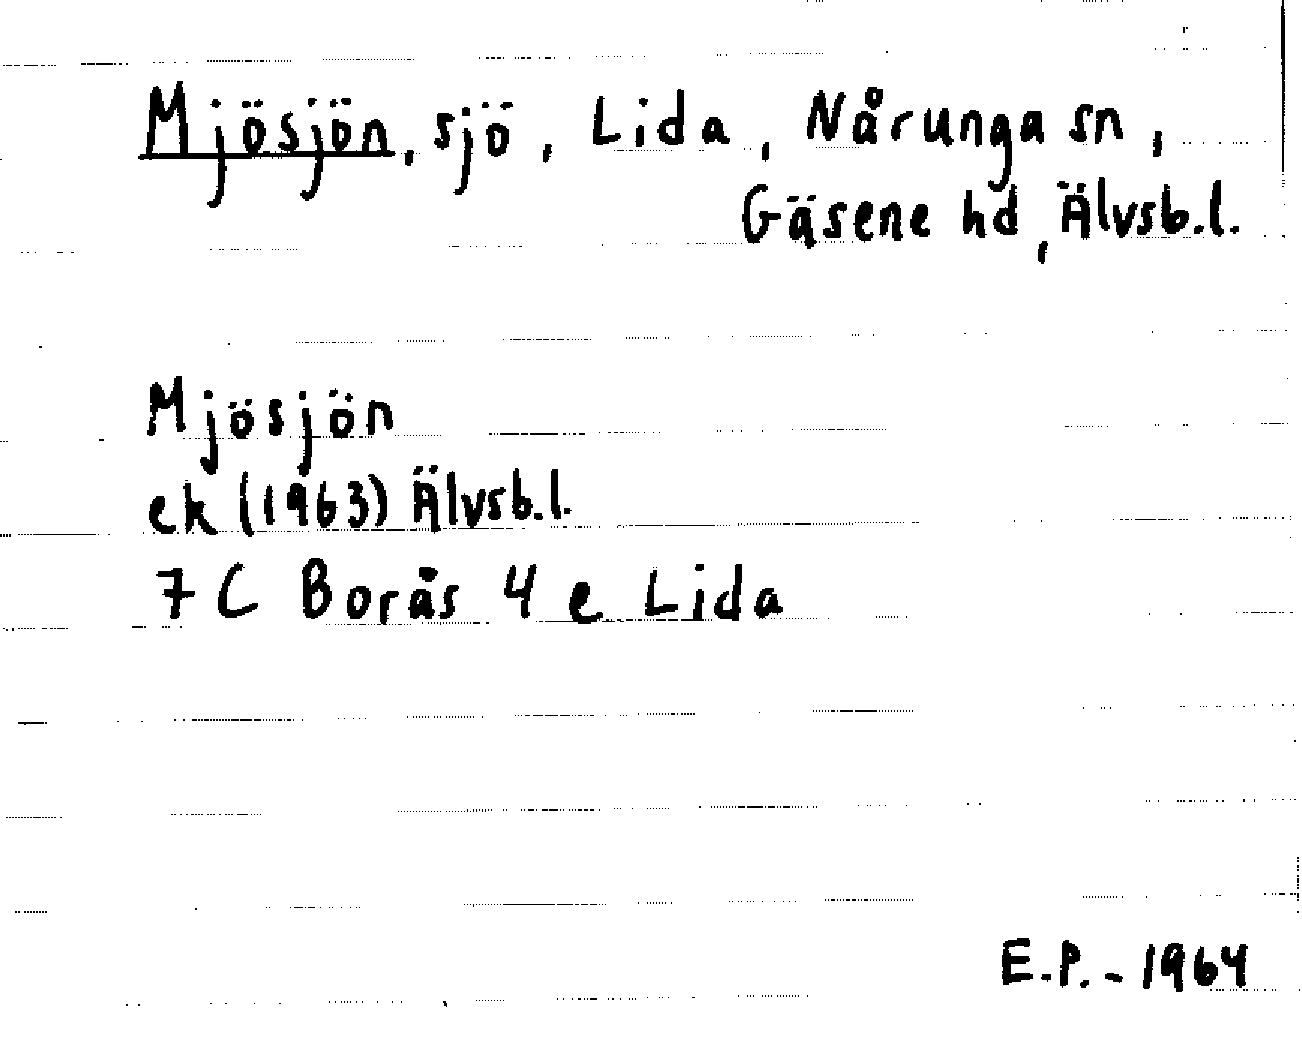 Mjösjön, sjö, Lida, Nårunga sn,
Gäsene hd, Älvsb.l.
Mjösjön
ek (1963) Älvsb.l.
7 C Borås 4 e Lida
E.P. - 1964